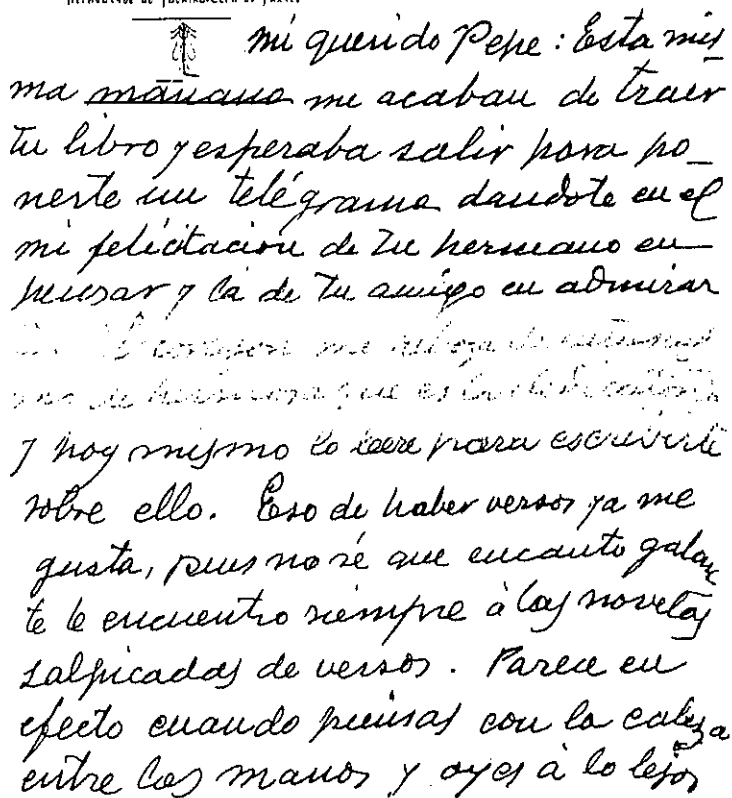 mi querido Pepe: Esta mis-
ma mañana me acaban de traer
tu libro y esperaba salir para po-
nerte un telégrama dandote en el
mi felicitación de tu hermano en
pensar y la de tu amigo en admirar
me
que es
y hoy mismo lo leere para escrivirte
sobre ello. Eso de haber versos ya me
gusta, pues no sé que encanto galan
te le encuentro siempre à las novelas
salpicadas de versos. Parece en
efecto cuando piensas con la cabeza
entre las manos y oyes à lo lejos